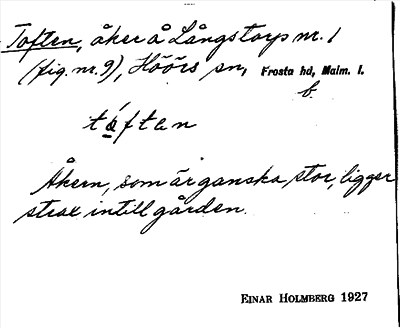 Toften, åker å Långstorp nr. 1
(fig. nr. 9), Höörs sn, Frosta hd, Malm. l.
b.
táftan
Åkern, som är ganska stor, ligger
strax intill gården.
EINAR HOLMBERG 1927